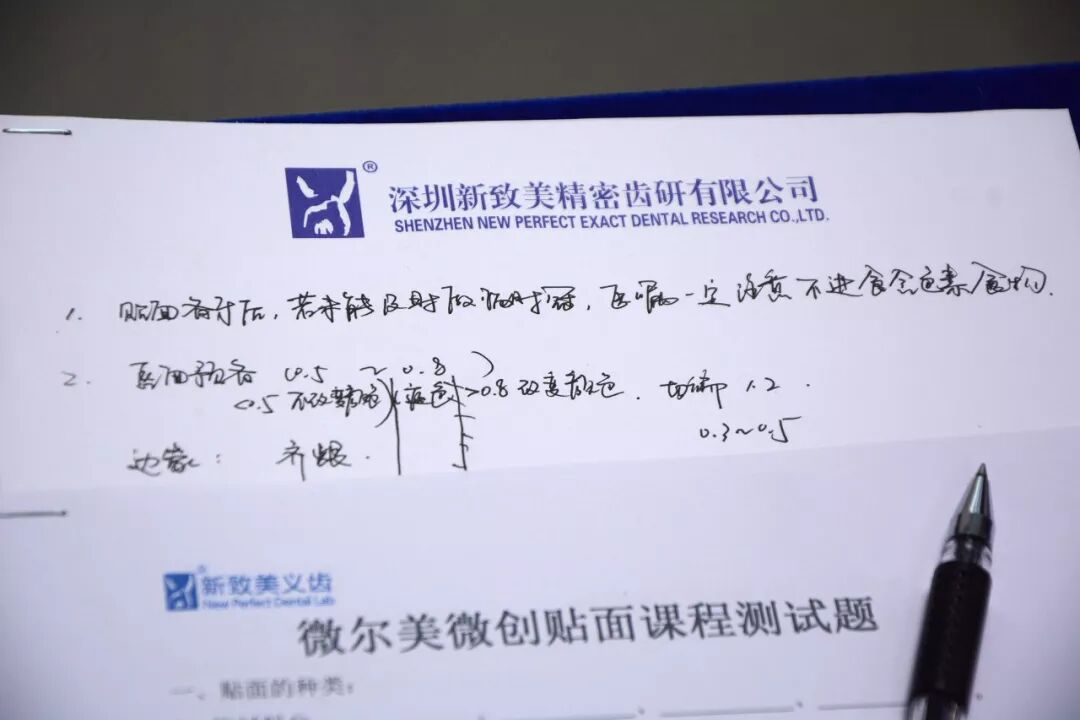 ®
深圳新致美精密齿研有限公司
SHENZHEN NEW PERFECT EXACT DENTAL RESEARCH CO.,LTD.
1. 贴面备牙后,若未能及时做临时冠,医嘱一定注意不进食含色素食物.
2. 唇面预备 (0.5 ~ 0.8 )
<0.5 不改变颜色 >0.8 改变颜色. 切端 1.2 .
0.3~0.5
边缘: 齐龈.
新致美义齿
New Perfect Dental Lab
微尔美微创贴面课程测试题
一、贴面的种类: